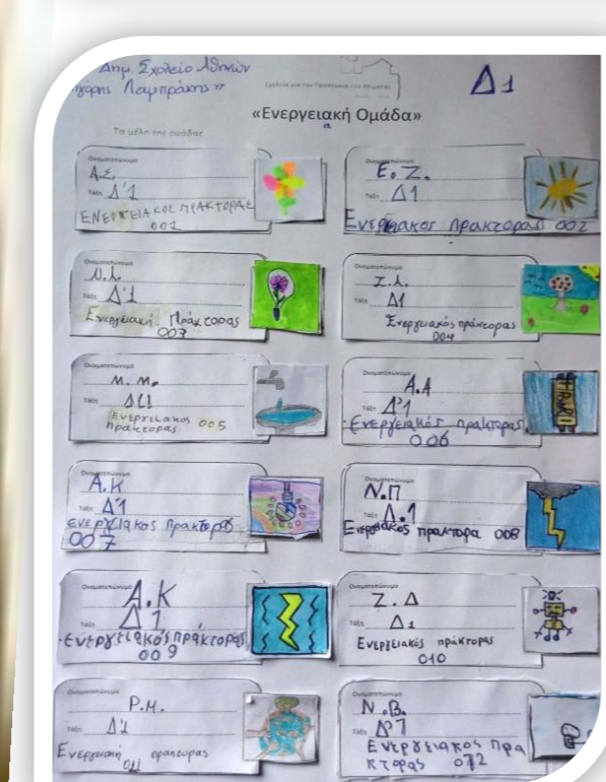 Δημ. Σχολείο Αθηνών
Γρηγόρης Λαμπράκης"
Σχολεία για την Προστασία του Κλίματος
Δ1
«Ενεργειακή Ομάδα»
Τα μέλη της ομάδας
Ονοματεπώνυμο
Α.Σ.
Τάξη Δ'1
ΕΝΕΡΓΕΙΑΚΟΣ ΠΡΑΚΤΟΡΑΣ
001
Ονοματεπώνυμο
Ε. Ζ.
Τάξη Δ1
Ενεργειακος πρακτορας 002
Ονοματεπώνυμο
Ν.Λ.
Τάξη Δ'1
Ενεργειακή Πράκτορας
003
Ονοματεπώνυμο
Ζ.Λ.
Τάξη Δ1
Ενεργειακός πράκτορας
004
Ονοματεπώνυμο
Μ. Μ.
Τάξη
Ενεργειακος
πρακτορας 005
Ονοματεπώνυμο
Α.Α
Τάξη Δ'1
Ενεργειακός πρακτορας
006
Ονοματεπώνυμο
Α.Κ
Τάξη Δ'1
ενεργειακος πρακτορας
007
Ονοματεπώνυμο
Ν.Π
Τάξη Δ.1
Ενεργειακός πρακτορα 008
Ονοματεπώνυμο
Α.Κ
Τάξη Δ1
ενεργειακός πράκτορας
009
Ονοματεπώνυμο
Ζ.Δ
Τάξη Δ1
Ενεργειακός πράκτορας
010
Ονοματεπώνυμο
Ρ.Μ.
Τάξη Δ'1
Ενεργειακή πρακτορας
011
Ονοματεπώνυμο
Ν.Β.
Τάξη Δ'1
Ενεργειακος πρα
κτορας 012